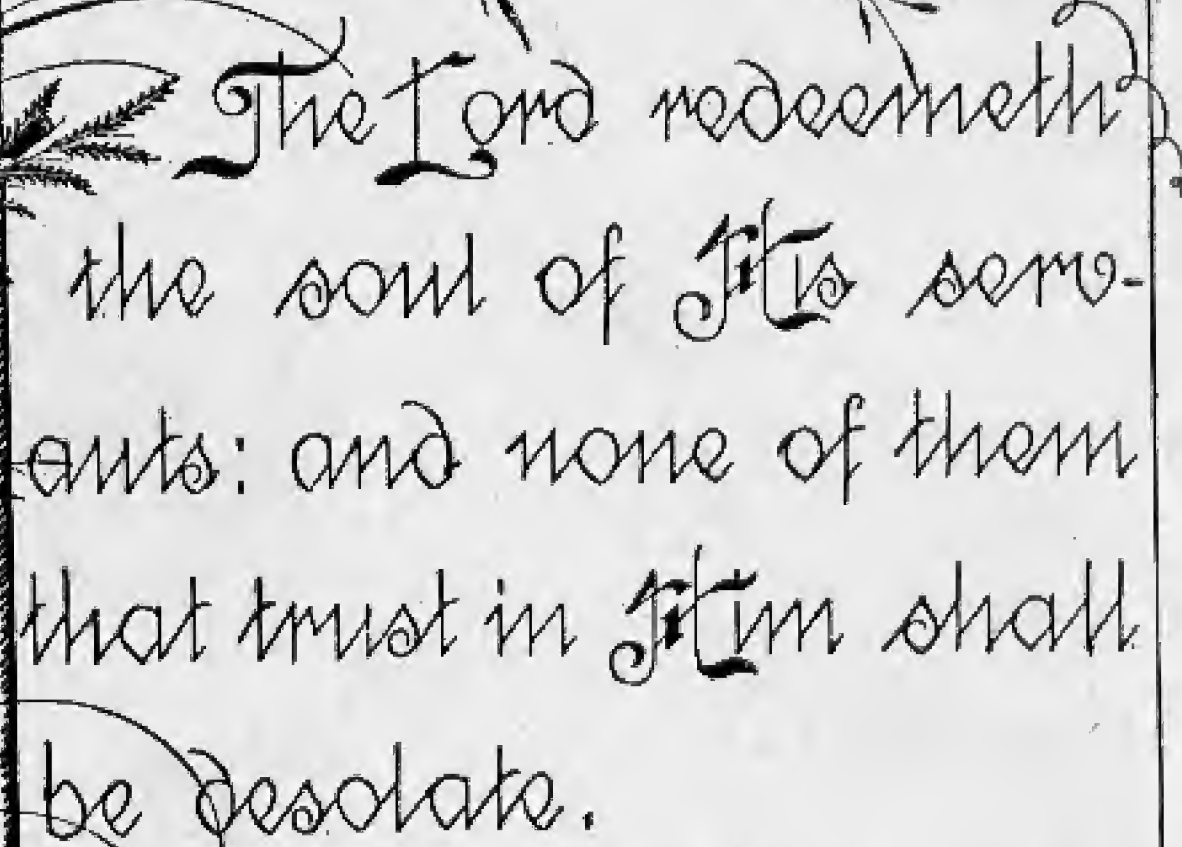 The Lord redeemeth
the soul of His serv-
ants: and none of them
that trust in Him shall
be desolate.